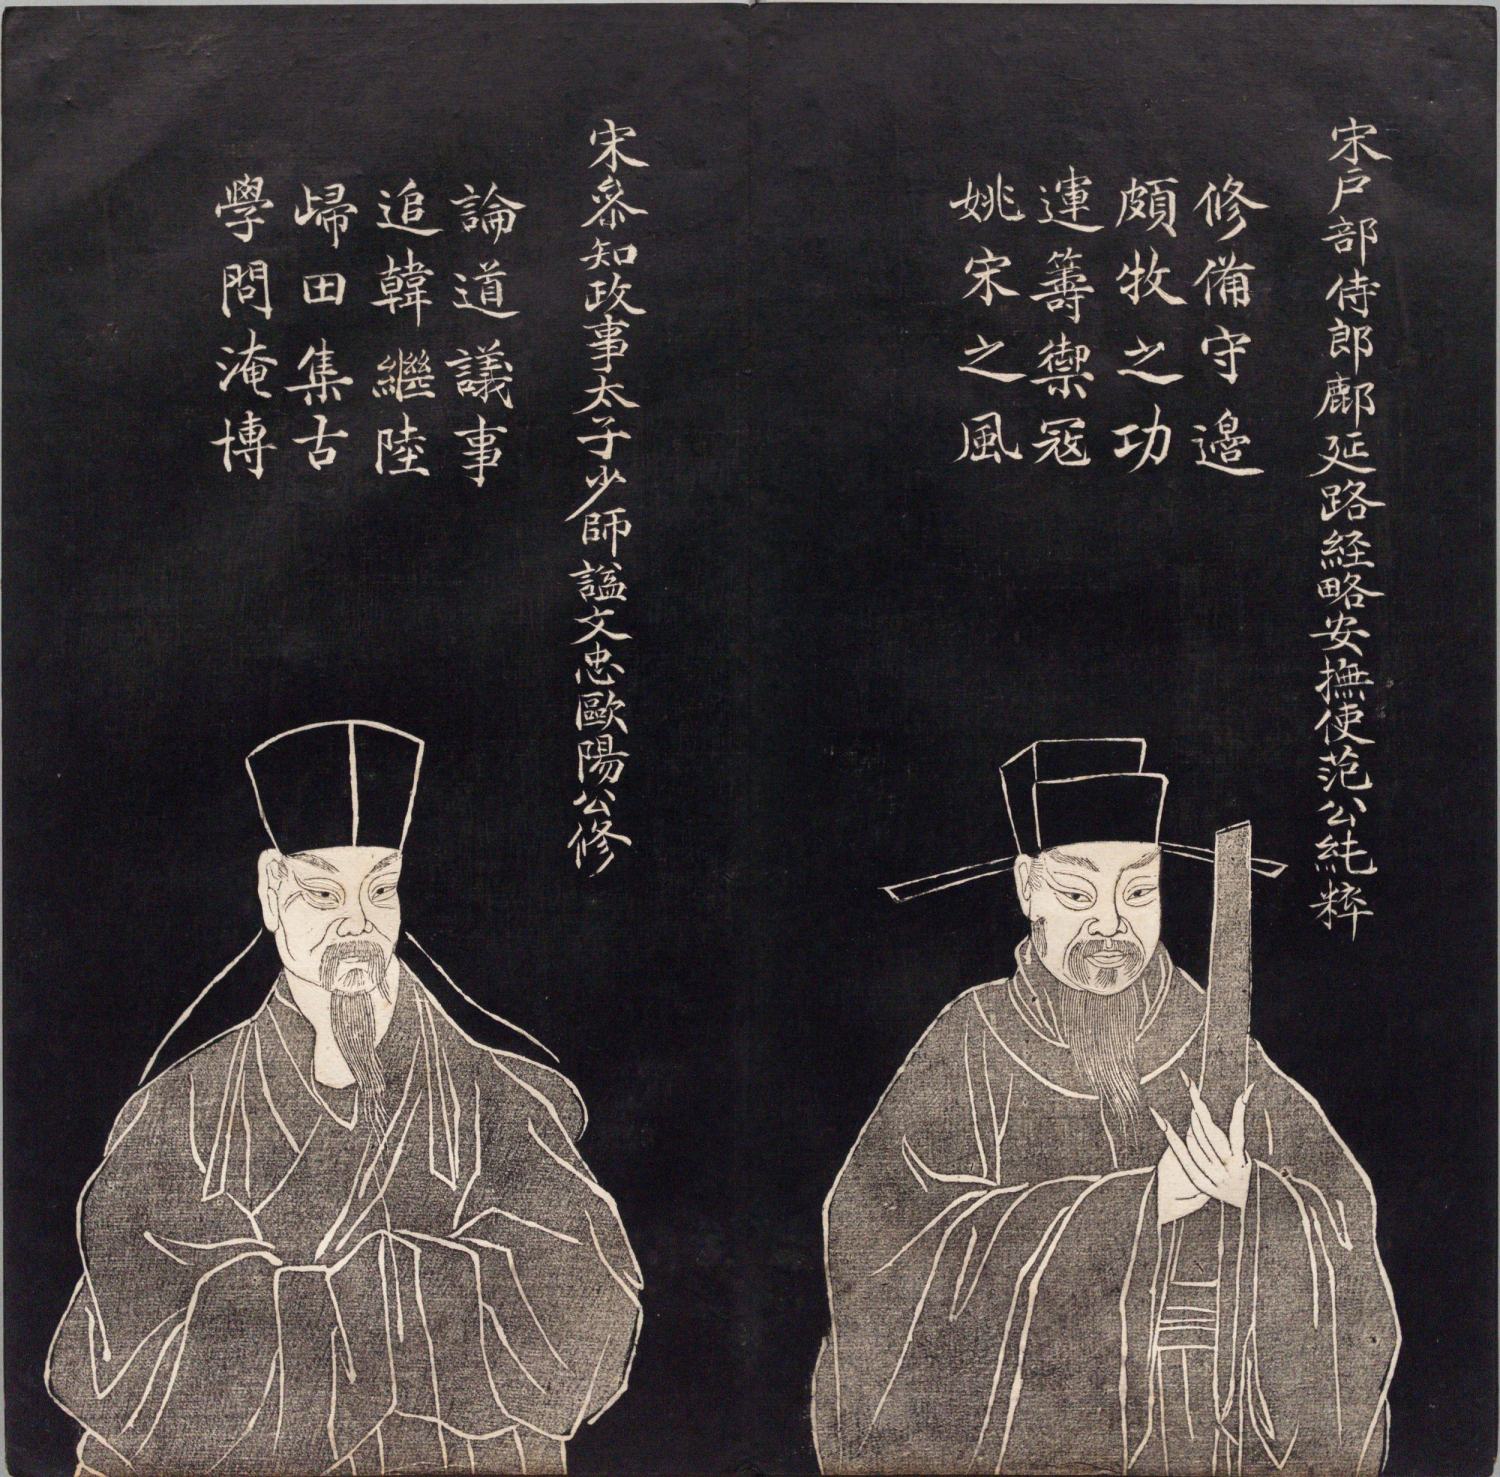 宋户部侍郎鄜延路経略安撫使范公純粹
修備守邊
頗牧之功
運籌禦冦
姚宋之風
宋叅知政事太子少師謚文忠歐陽公修
論道議事
追韓繼陸
歸田集古
學問淹博